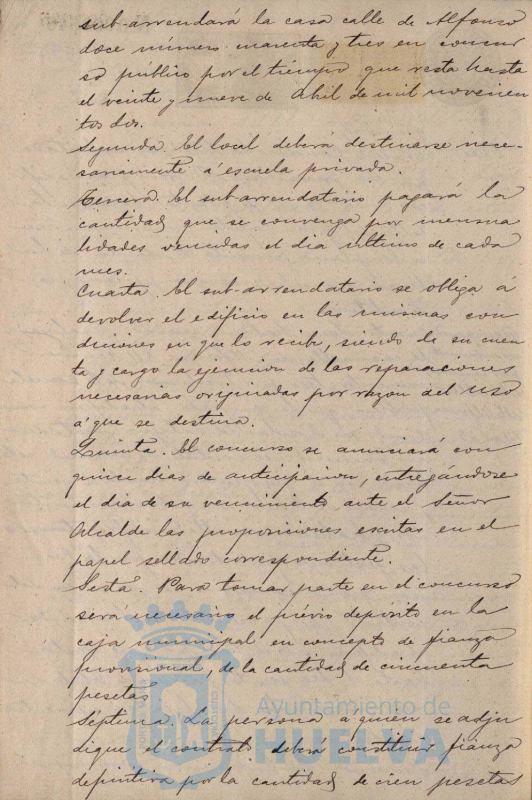 sub-arrendará la casa calle de Alfonso
doce número cuarenta y tres en concur
so público por el tiempo que resta hasta
el veinte y nueve de Abril de mil novecien
tos dos.
Segunda. El local deberá destinarse nece-
sariamente á escuela privada.
Tercera. El sub-arrendatario pagará la
cantidad que se convenga por mensua
lidades vencidas el dia último de cada
mes.
Cuarta. El sub-arrendatario se obliga á
devolver el edificio en las mismas con
diciones en que lo recibe, siendo de su cuen
ta y cargo la ejecucion de las reparaciones
necesarias originadas por razon del uso
á que se destina.
Quinta. El concurso se anunciará con
quince dias de anticipacion, entregándose
el dia de su vencimiento ante el Señor
Alcalde las proposiciones escritas en el
papel sellado correspondiente.
Sesta. Para tomar parte en el concurso
será necesario el prévio depósito en la
caja municipal en concepto de fianza
provisional, de la cantidad de cincuenta
pesetas
Séptima. La persona á quien se adju
dique el contrato deberá constituir fianza
definitiva por la cantidad de cien pesetas
Ayuntamiento de
HUELVA